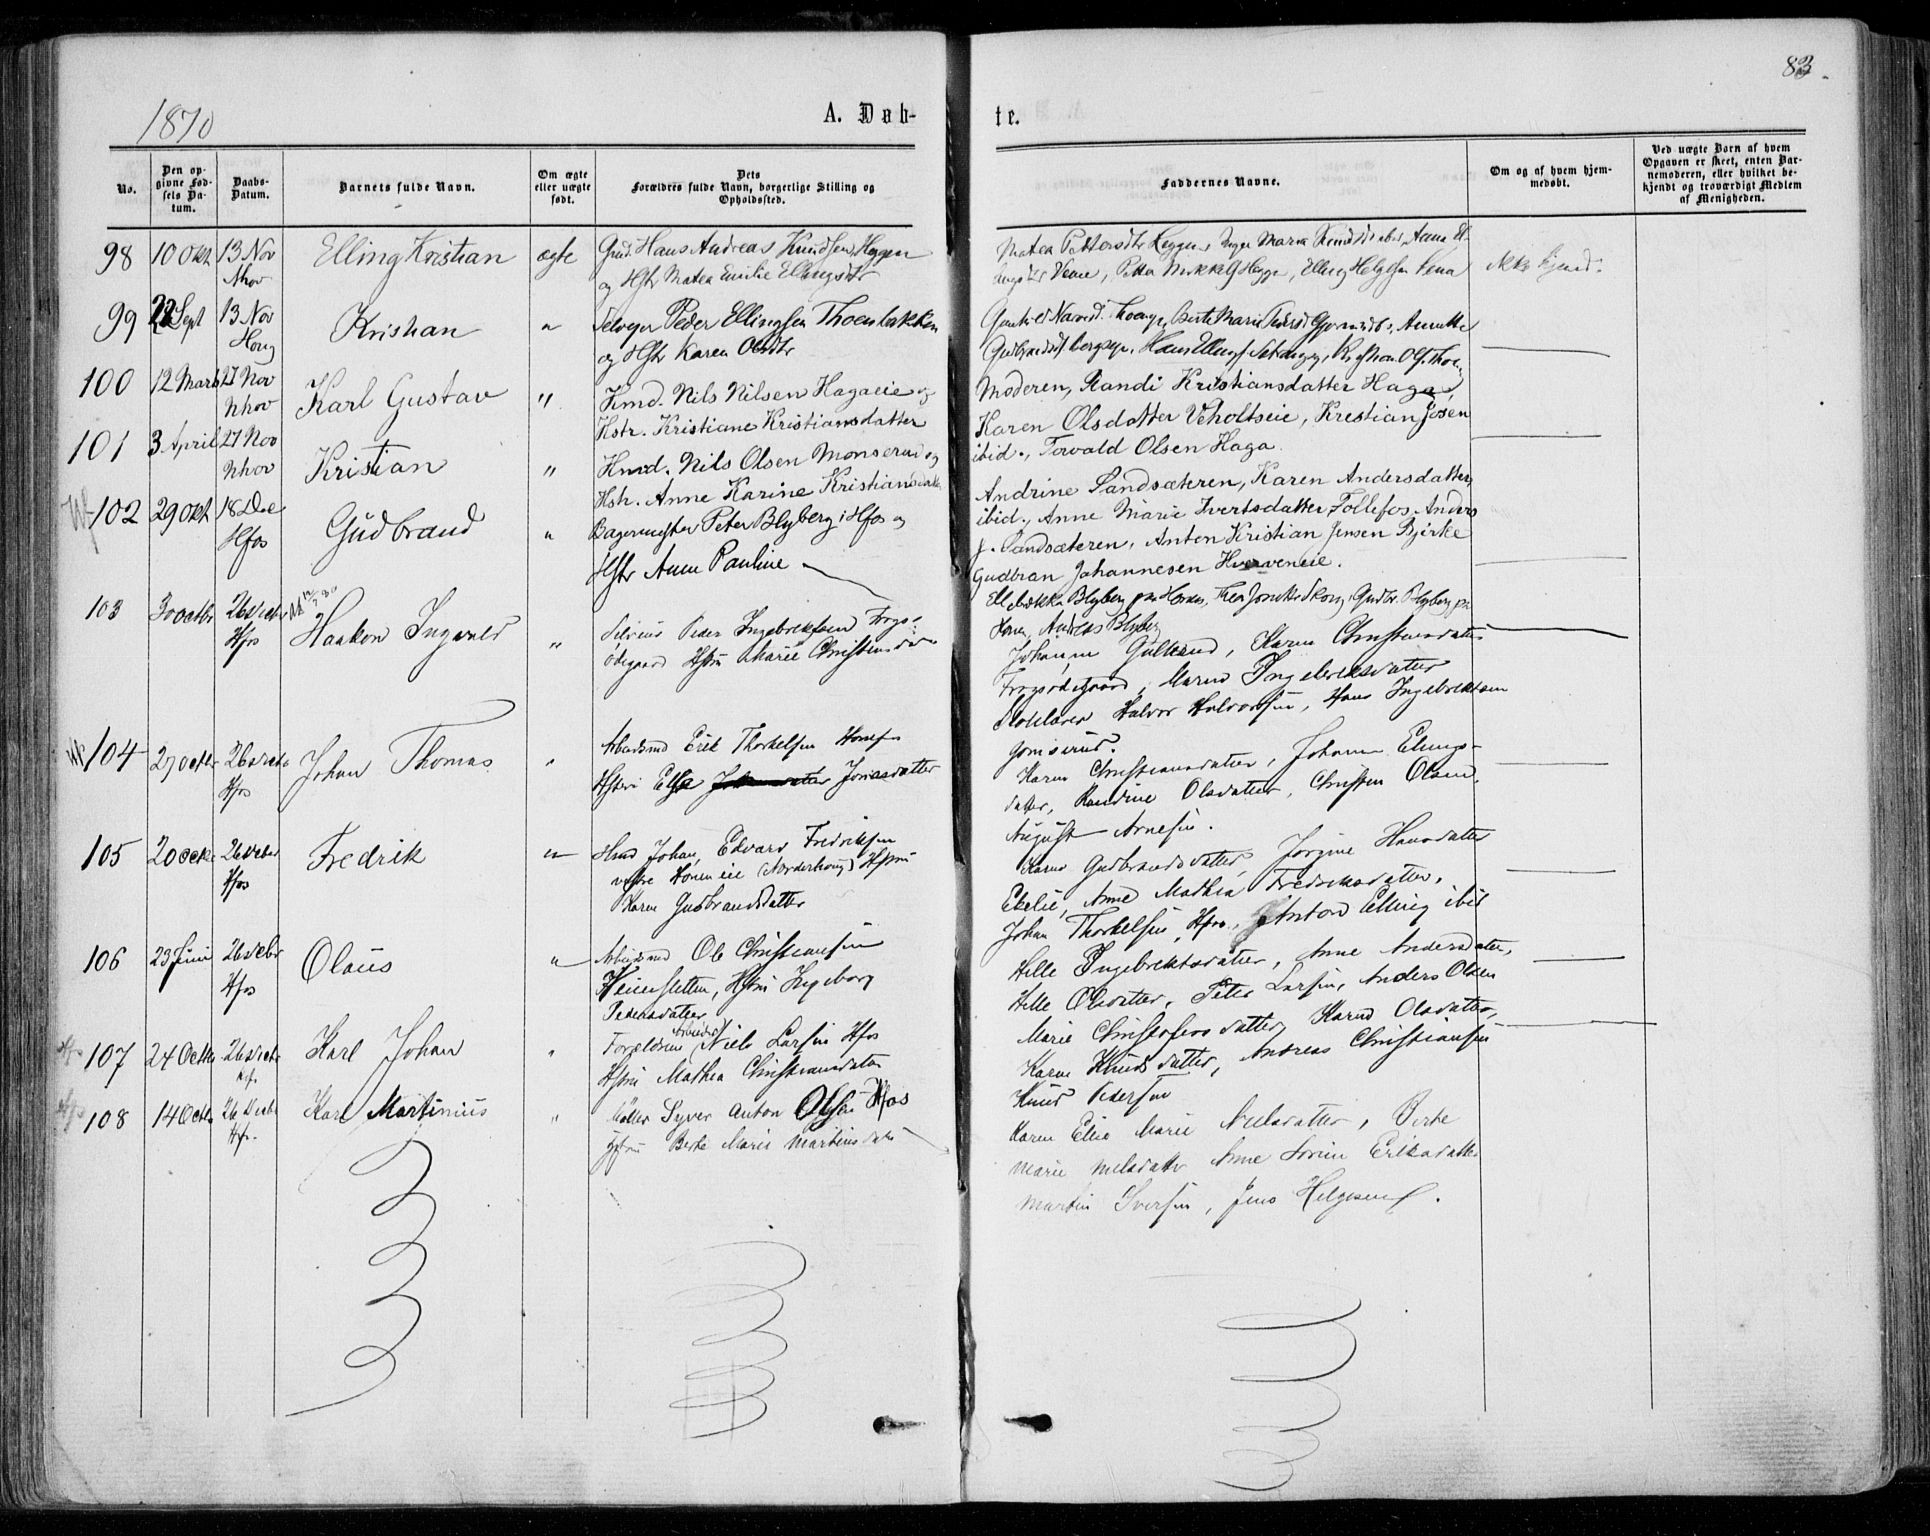 83
1870
A. Døb-
te.
No.
Den op-
givne Fød-
sels Da-
tum.
Daabs-
Datum.
Barnets fulde Navn.
Om ægte
eller uægte
født.
Dets
Forældres fulde Navn, borgerlige Stilling og
Opholdssted.
Faddernes Navne.
Om og af hvem hjem-
medøbt.
Ved uægte Børn af hvem
Opgaven er skeet, enten Bar-
nemoderen, eller hvilket be-
kjendt og troværdigt Medlem
af Menigheden.
98 10 Okt 13 Nov Elling Kristian ægte Gmd. Hans Andreas Knudsen Heggen
Nhov og Hstr Matea Emilie Ellingsdtr
Matea Pettersdtr Heggen, Inger Maria Anne El-
lingsdtr Petter Mikkels Hegge, Elling Helgesen ikke hjemd.
99 22 Sept 13 Nov Kristian " Selveger Peder Ellingsen Thoenbakken
Hong og Hstr Karen Olsdtr
Berte Marie Annette
Hans Ellings Kristian Ols. Thoen
100 12 Marts 27 Nov Karl Gustav " Hmd. Nils Nilsen Hagaeie og
Nhov Hstr. Kristiane Kristiansdatter
Moderen, Randi Kristiansdatter Haga,
Karen Olsdatter Veholtseie, Krestian Josen
ibid., Torvald Olsen Haga.
101 3 April 27 Nov Kristian " Hmd. Nils Olsen Monserud og
Nhov Hstr. Anne Karine Kristiansdatter
Andrine Sandsæteren, Karen Andersdatter
ibid., Anne Marie Ivertsdatter Follefos, Anders
J. Sandsæteren, Anton Kristian Jensen Bjerke
Gudbran Johannesen Hverveneie.
102 29 Okt 18 Dec Gudbrand " Bagermester Peter Blyberg i Hfos og
Hfos Hstr Anne Pauline
Blyberg Thea Gudbr. Blyberg
Andreas Blyberg
103 30 octbr 26 decbr Haakon Ingvald " Selveier Peder Ingebrektsen Frogs-
Hfos ødegaard Hstru Marie Christiansdatter
Johanne Gulterud, Karen Christiansdatter
Frogsødegaard, Maren Ingebrektsdatter
Halvor Halvorsen, Hans Ingebrektsen
Gomserud.
104 27 octbr 26 decbr Johan Thomas " Arbeidsmd Erik Thorkelsen Hønefos
Hfos Hstru Else Jonasdatter
Karen Christiansdatter, Johanne Ellings-
datter, Randine Olsdatter, Christen Olsen
August Arnesen.
105 20 octbr 26 decbr Fredrik " Hmd Johan Edvard Fredriksen
Hfos vestre Hønen eie (Norderhoug) Hstru
Karen Gudbrandsdatter
Karen Gudbrandsdatter, Jørgine Hansdatter
Ekelie, Anne Mathea Fredriksdatter,
Johan Thorkelsen, Hfos, Anton Elling ibid
106 23 Juni 26 decbr Olaus " Arbeidsmd Ole Christiansen
Hfos Heiersletten, Hstru Ingeborg
Pedersdatter
Helle Ingebrektsdatter, Anne Andersdatter,
Helle Olsdatter, Peter Larsen, Anders Olsen
107 24 Octbr 26 decbr Karl Johan " Forældrene (Arbeider) Niels Larsen Hfos
Hfs Hstru Mathea Christiansdatter
Marie Christofersdatter, Karen Olsdatter,
Karen Knudsdatter, Andreas Christiansen
Knud Pedersen
108 14 Octbr 26 Decbr Karl Martinius " Møller Syver Anton Olsen Hfos
Hfs. Hstru Berte Marie Martinsdatter
Karen Elie Marie Nielsdatter, Berte
Marie Nielsdatter Anne Sorine Eriksdatter
Martin Iversen, Jens Helgesen.